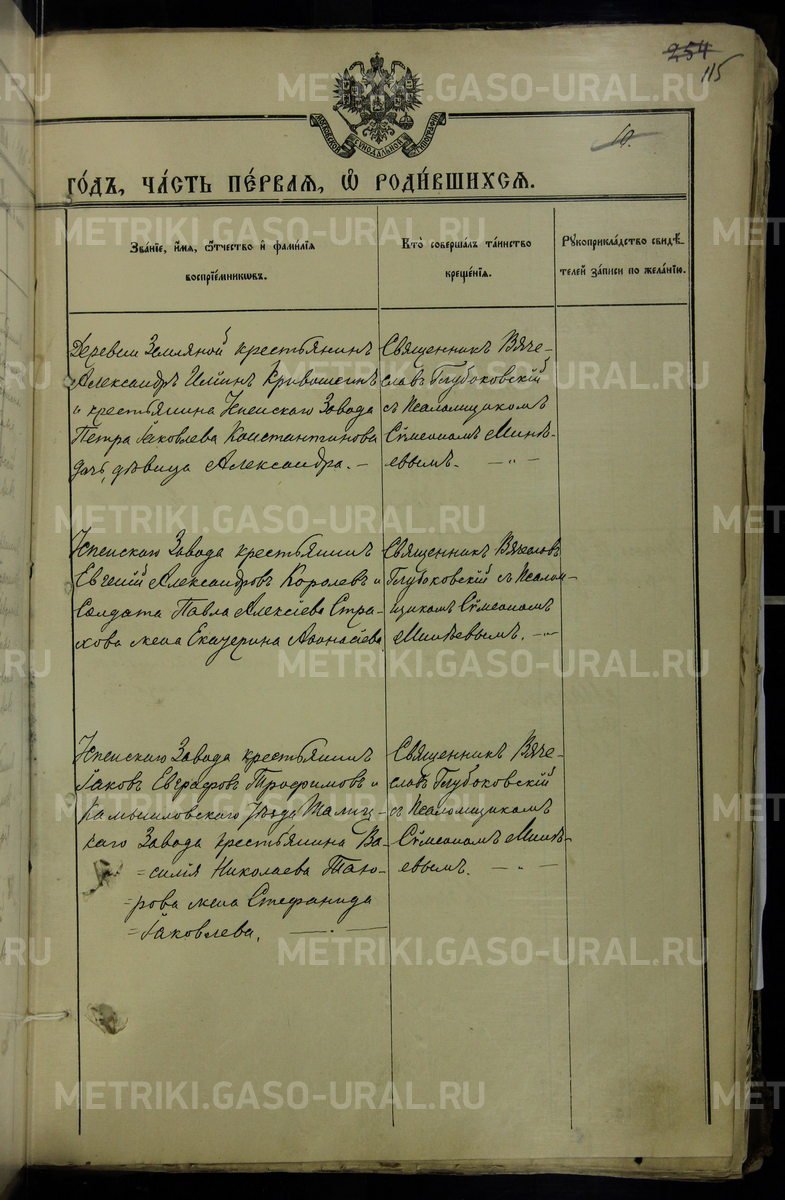 254
115
МОСКОВСКОЙ СѴНОДАЛЬНОЙ ТИПОГРАФІИ
10.
ГО́ДЪ, ЧА́СТЬ ПЕ́РВАЯ, Ѡ҆ РОДИ́ВШИХСЯ.
Зва́нїе, и҆́мя, ѻ҆́тчество и҆ фами́лїя
воспрїе́мникѡвъ.
Кто̀ соверша́лъ та́инство
креще́нїя.
Рꙋкоприкла́дство свидѣ́-
телей за́писи по жела́нїю.
Деревни Земляной крестьянинъ
Александръ Ильинъ Кривошеинъ
и крестьянина Успенскаго Завода
Петра Іаковлева Константинова
дочь, дѣвица Александра. —
Священникъ Вяче-
славъ Глубоковскій
съ Псаломщикомъ
Сѵмеономъ Минѣ-
евымъ. — „ —
Успенскаго Завода крестьянинъ
Евгеній Александровъ Королевъ и
Солдата Павла Алексіева Стра-
хова жена Екатерина Аѳонасіева
Священникъ Вячеславъ
Глубоковскій съ Псалом-
щикомъ Сѵмеономъ
Минѣевымъ. — „ —
Успенскаго Завода крестьянинъ
Іаковъ Евграфовъ Трофимовъ и
Камышловскаго Уѣзда Талиц-
каго Завода крестьянина Ва-
=силія Николаева
=рова жена Стефанида
=Іаковлева. — . —
Священникъ Вяче-
славъ Глубоковскій
съ Псаломщикомъ
Сѵмеономъ Минѣ-
евымъ. — „ —
METRIKI.GASO-URAL.RU